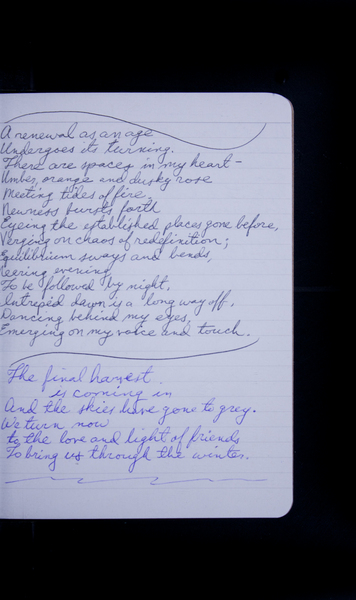 A renewal as an age
Undergoes its turning.
There are spaces in my heart —
Umber, orange and dusky rose
Meeting tides of fire,
Newness bursts forth
Eyeing the established places gone before,
Verging on chaos of redefinition;
Equilibrium sways and bends,
evening
To be followed by night,
Intrepid dawn is a long way off,
Dancing behind my eyes,
Emerging on my voice and touch.
The final harvest
is coming in
And the skies have gone to grey.
We turn now
to the love and light of friends
To bring us through the winter.